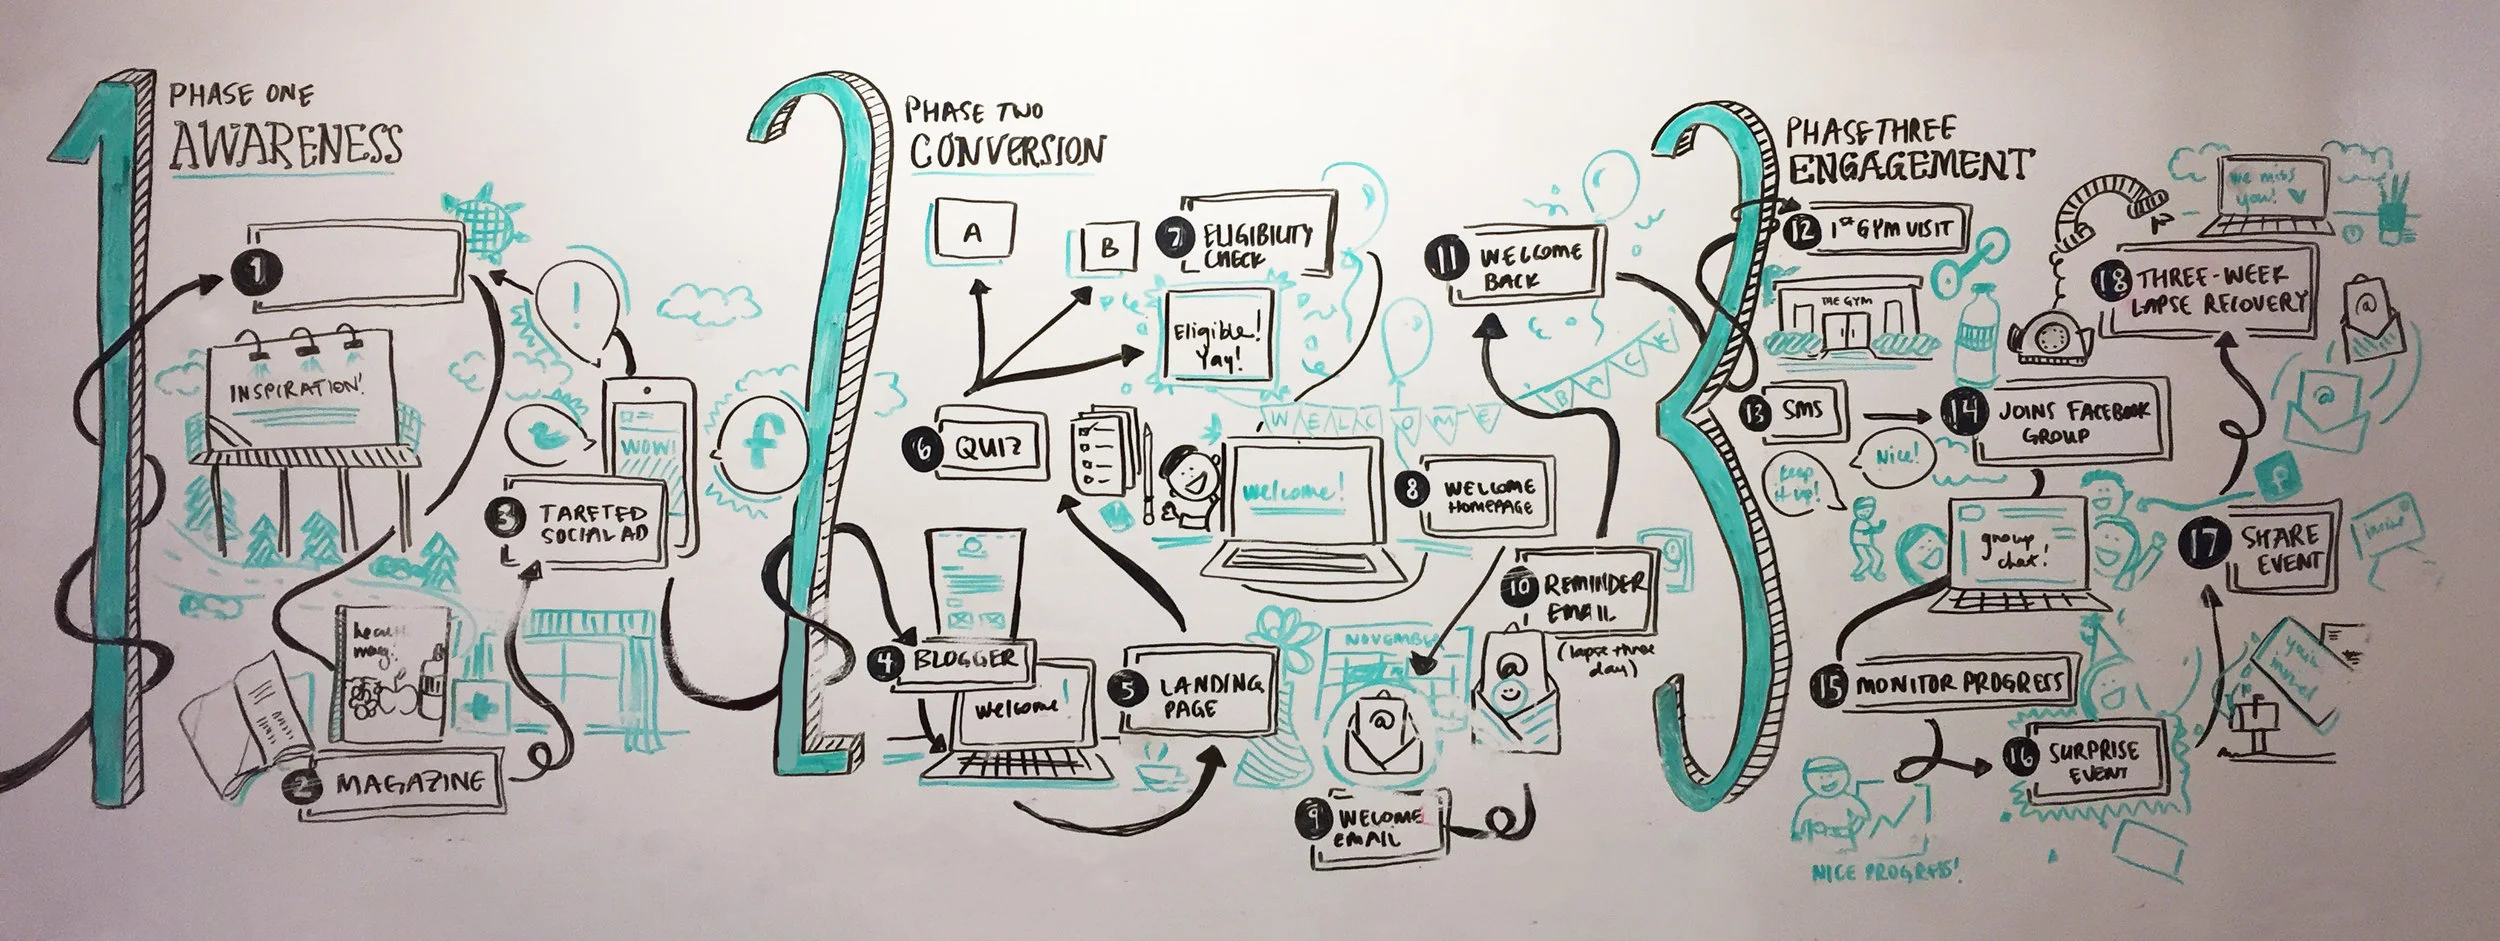 1
PHASE ONE
AWARENESS
1
INSPIRATION!
!
WOW!
f
3 TARETED
SOCIAL AD
mag.
2 MAGAZINE
2
PHASE TWO
CONVERSION
A
B
7 ELIGIBILITY
CHECK
Eligible!
Yay!
6 QUIZ
WELCOME
BACK
welcome!
8 WELCOME
HOMEPAGE
4 BLOGGER
welcome!
5 LANDING
PAGE
NOVEMBER
@
9 WELCOME
EMAIL
10 REMINDER
EMAIL
(lapse three
day)
@
11 WELCOME
BACK
3
PHASE THREE
ENGAGEMENT
12 1st GYM VISIT
THE GYM
13 SMS
keep
it up!
Nice!
14 JOINS FACEBOOK
GROUP
group
chat!
15 MONITOR PROGRESS
NICE PROGRESS!
16 SURPRISE
EVENT
17 SHARE
EVENT
f
18 THREE-WEEK
LAPSE RECOVERY
we miss
you!
@
@